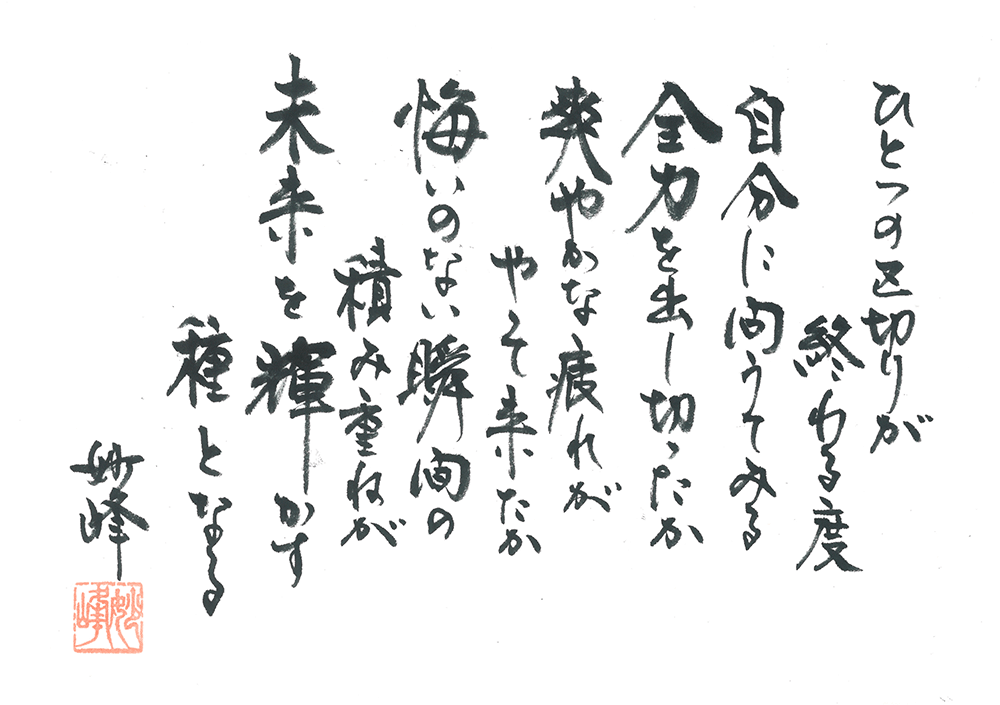 ひとつの区切りが
終わる度
自分に問うてみる
全力を出し切ったか
爽やかな疲れが
やって来たか
悔いのない瞬間の
積み重ねが
未来を輝かす
種となる
妙峰
妙峰